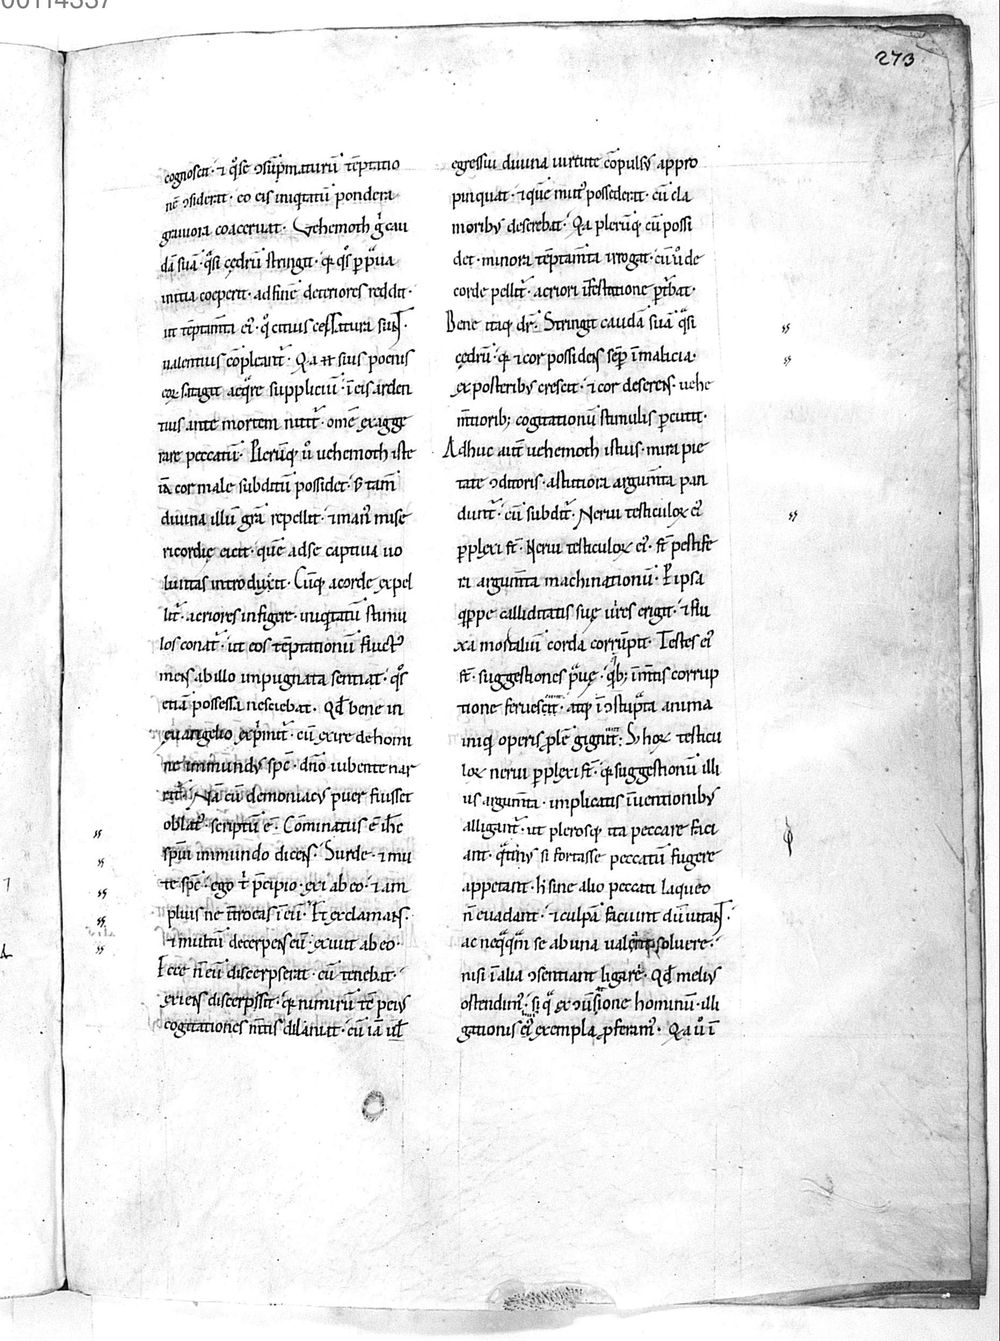 273
cognoscit· ⁊ qͦ se ↄsūpmaturū tēptatio
nē ↄsiderat· eo eis iniqtatū pondera
grauiora coaceruat· Vehemoth g̊ cau
dā suā· qͣsi cędrū stringit· qꝛ qͦs ꝑpͥua
initia coeperit· ad finē deteriores reddit·
ut tēptam̄ta eiꝰ· qͦ citius cessatura sunt·
ualentius cōpleant᷑· Qꝛ a
cor satagit aeqͣre suppliciū· ī eis arden
tius ante mortem nitit᷑· om̄e exagge
rare peccatū· Plerūq; ů uehemoth iste
iā cor male subditū possidet· s; tam̄
diuina illū gr̄a repellit· ⁊ manꝰ mise
ricordię eicit· quē ad se captiua uo
luntas introduxit· Cūq; a corde expel
lit᷑· acriores infigere· iniqtatū stimu
los conat᷑· ut eos tēptationū fluctꝰ
mens ab illo impugnata sentiat· qͦs
etiā possessa nesciebat· Qd̄ bene in
euangelio exp̄mit᷑· cū exire de homi
ne immundꝰ sp̄c· dn̄o iubente nar
rat᷑· Nā cū demoniacꝰ puer fuisset
oblatꝰ· scriptū ē· Cōminatus ē ih̄c
sp̄ui immundo dicens· Surde· ⁊ mu
te sp̄c· ego t̄ p̄cipio· exi ab eo· ⁊ am
plius ne īt̄roeas ī eū· Et exclamans·
⁊ multū decerpens eū· exiuit ab eo·
Ecce n̄ eū discerpserat· cū tenebat·
exiens discerpsit· qꝛ nimirū tc̄ peiꝰ
cogitationes m̄tis dilaniat· cū iā uͥci
egressui diuina uirtute cōpulsꝰ appro
pinquat· ⁊ quē mutꝰ possederat· cū cla
moribꝰ deserebat· Qꝛ a plerūq; cū possi
det· minora tēptam̄ta irrogat· cū ů de
corde pellit᷑· acriori īfestatione ꝑt᷑bat·
Bene itaq; dr̄· Stringit caudā suā qͣsi
cędrū· qꝛ ⁊ cor possidens sēꝑ ī malicia·
ex posteribꝰ crescit· ⁊ cor deserens uehe
m̄tiorib; cogitationū stimulis ꝑcutit·
Adhuc aut̄ uehemoth istius· mira pie
tate ↄditoris· astutiora argum̄ta pan
dunt᷑· cū subdit᷑· Nerui testiculoꝝ eiꝰ
ꝑplexi st̄· Nerui testiculoꝝ eiꝰ· st̄ pestife
ra argum̄ta machinationū· P ipsa
qͥppe calliditatis suę uires erigit· ⁊ flu
xa mortaliū corda corrūpit· Testes eiꝰ
st̄· suggestiones pͣuę· qͥb; ī m̄tis corrup
tione feruescit· atq; ī ↄstupͣta anima
iniq operis ꝓlē gignit· Sꝫ hoꝝ testicu
loꝝ nerui ꝑplexi st̄· qꝛ suggestionū illi
us argum̄ta· implicatis īuentionibꝰ
alligant᷑· ut plerosq; ita peccare faci
ant· qͣtinꝰ si fortasse peccatū fugere
appetant· h̄ sine alio peccati laqueo
n̄ euadant· ⁊ culpā faciunt dū uitant·
ac neqͣqͣm se ab una ualent soluere·
nisi ī alia ↄsentiant ligari· Qd̄ meliꝰ
ostendimꝰ· si qͣ ex ↄuersione hominū· illi
gationis eiꝰ exempla ꝓferamꝰ· Qꝛ a ů ī